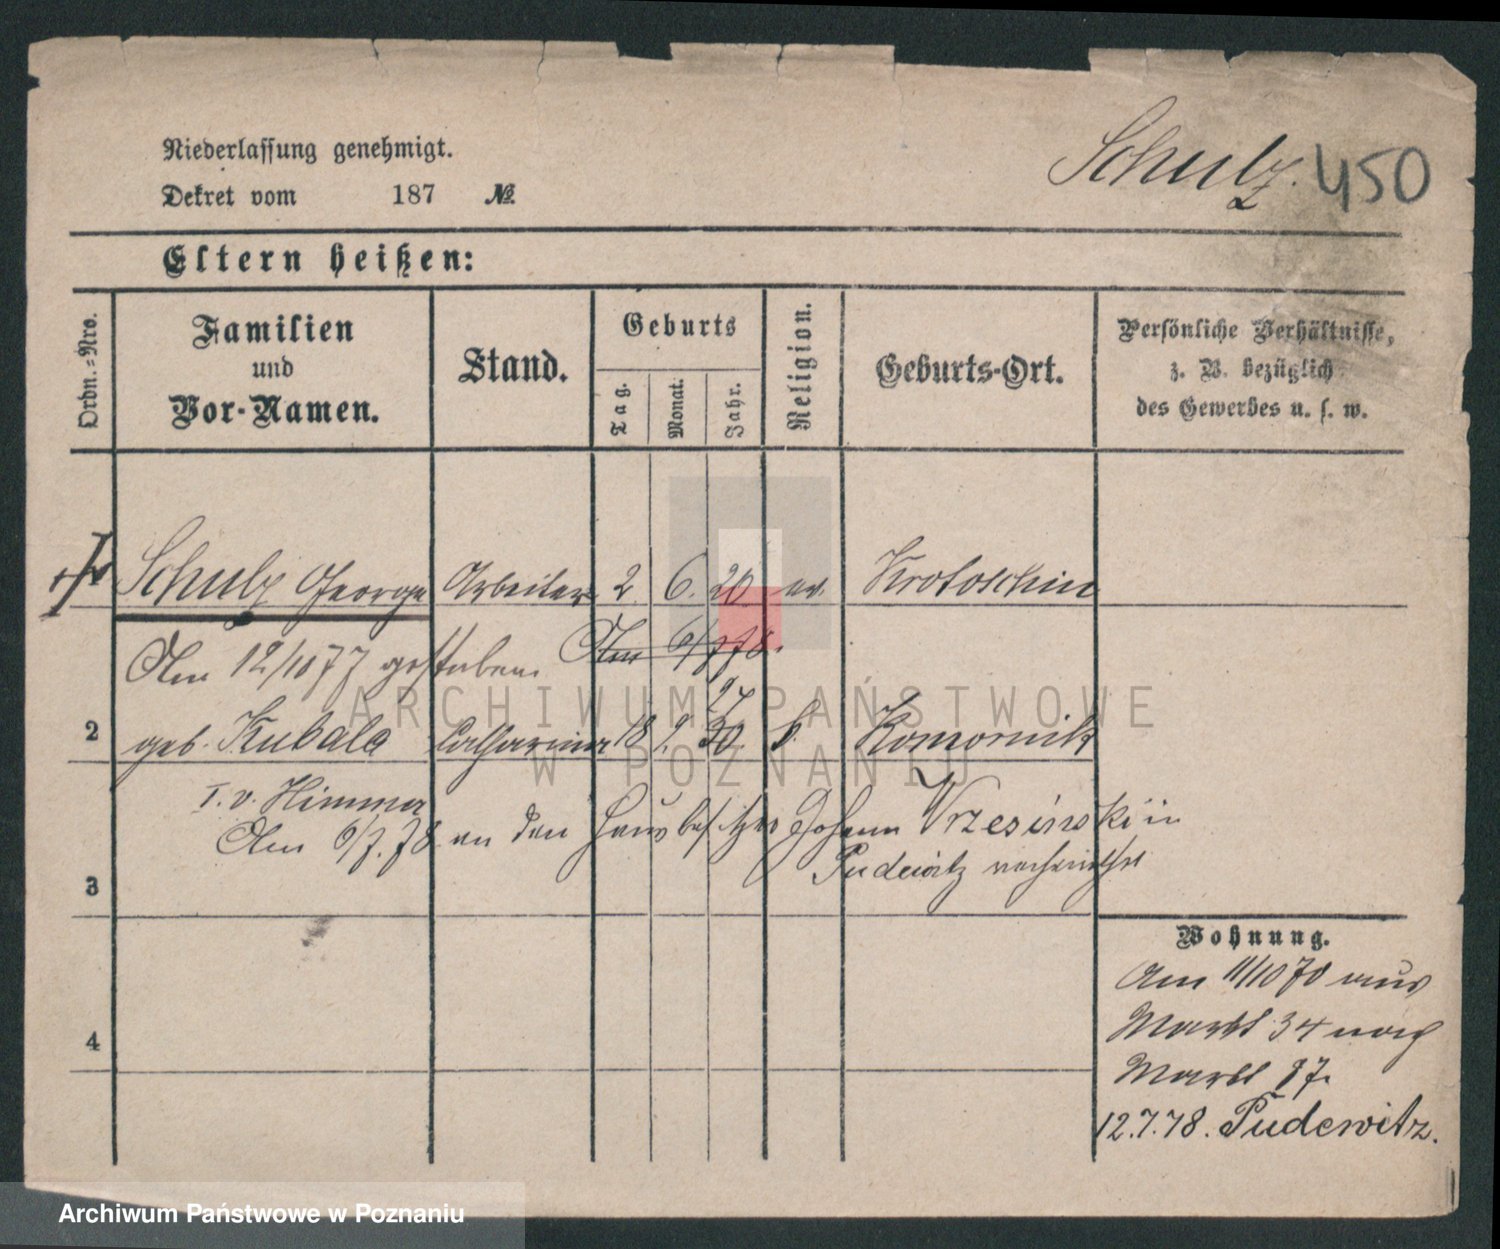 Niederlassung genehmigt.
Schulz. 450
Dekret vom 187 №.
Eltern heißen:
Ordn.=Nro.
Familien
und
Vor-Namen.
Stand.
Geburts
Tag.
Monat.
Jahr.
Religion.
Geburts-Ort.
Persönliche Verhältnisse,
z. B. bezüglich
des Gewerbes u. s. w.
Schulz George Arbeiter 2. 6. 20. ev. Krotoschin
Am 12/10 77 gestorben. Am 6/7 78.
ARCHIWUM PAŃSTWOWE
W POZNANIU
2 geb. Kubala Catharina 18 9. 30. k. Komornik
Am 6/7. 78 an den Hausbesitzer Johann Wrzesinski in
3 Pudewitz verheirathet
Wohnung.
Am 11/10 70 aus
Markt 34 nach
4
Markt 87.
12.7.78. Pudewitz.
Archiwum Państwowe w Poznaniu